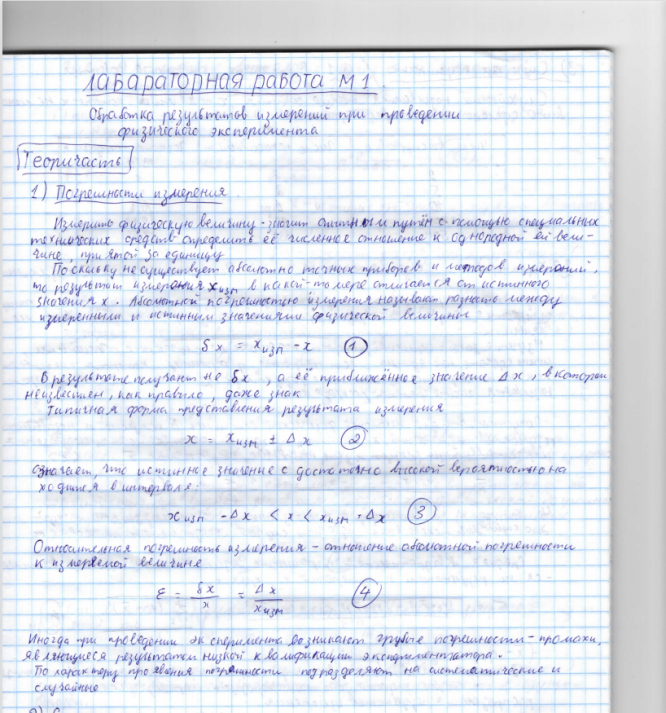 Лабараторная работа №1
Обработка результатов измерений при проведении
физического эксперимента
Теоричасть
1) Погрешности измерения
Измерить физическую величину - значит опытным путём с помощью специальных
технических средств определить её численное отношение к однородной ей вели-
чине, принятой за единицу
Поскольку не существует абсолютно точных приборов и методов измерений,
то результат измерения x изм в какой-то мере отличается от истинного
значения x. Абсолютной погрешностью измерения называют разность между
измеренными и истинным значениями физической величины
δx = x изм - x (1)
В результате получают не δx, а её приближённое значение Δx, в котором
неизвестен, как правило, даже знак
Типичная форма представления результата измерения
x = x изм ± Δx (2)
означает, что истинное значение с достаточно высокой вероятностью на
ходится в интервале:
x изм - Δx < x < x изм + Δx (3)
Относительная погрешность измерения - отношение абсолютной погрешности
к измеряемой величине
ε = δx/x = Δx/x изм (4)
Иногда при проведении эксперимента возникают грубые погрешности - промахи,
являющиеся результатом низкой квалификации экспериментатора.
По характеру проявения погрешности подразделяют на систематические и
случайные
2)